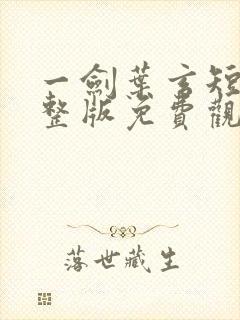 一劍葉玄短
整版免費觀
落世藏生